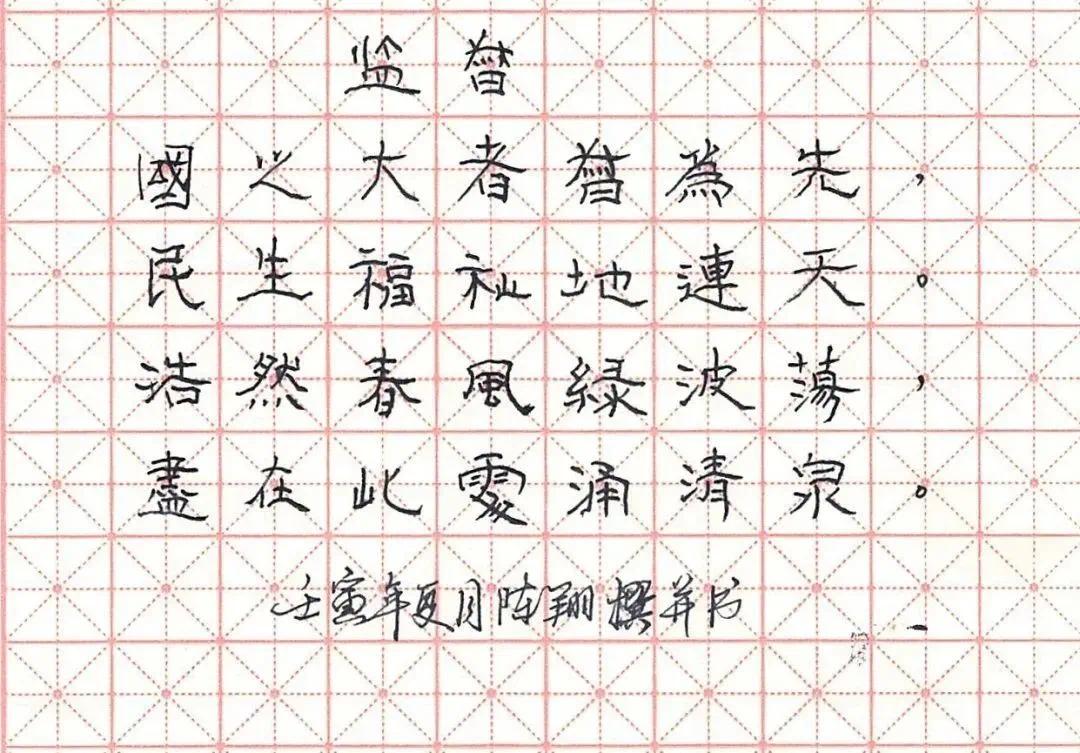 监督
國之大者督為先，
民生福祉地連天。
浩然春風緑波蕩，
盡在此處涌清泉。
壬寅年夏月陈翔撰并书